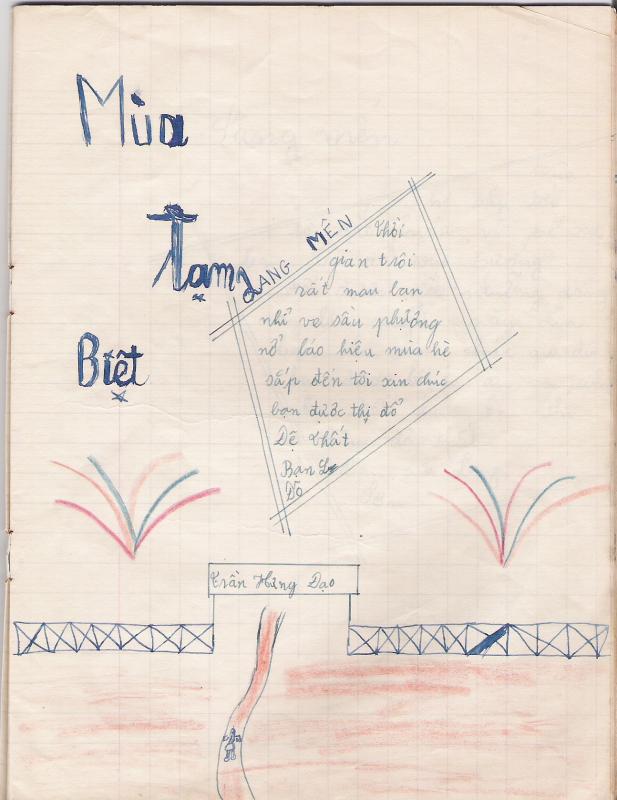 Mùa
Tạm
Biệt
QANG MẾN
thời
gian trôi
rất mau bạn
nhỉ ve sầu phượng
nở báo hiệu mùa hè
sắp đến tôi xin chúc
bạn được thi đổ
Đệ Nhất
Bạn
Đỏ
Trần Hưng Đạo